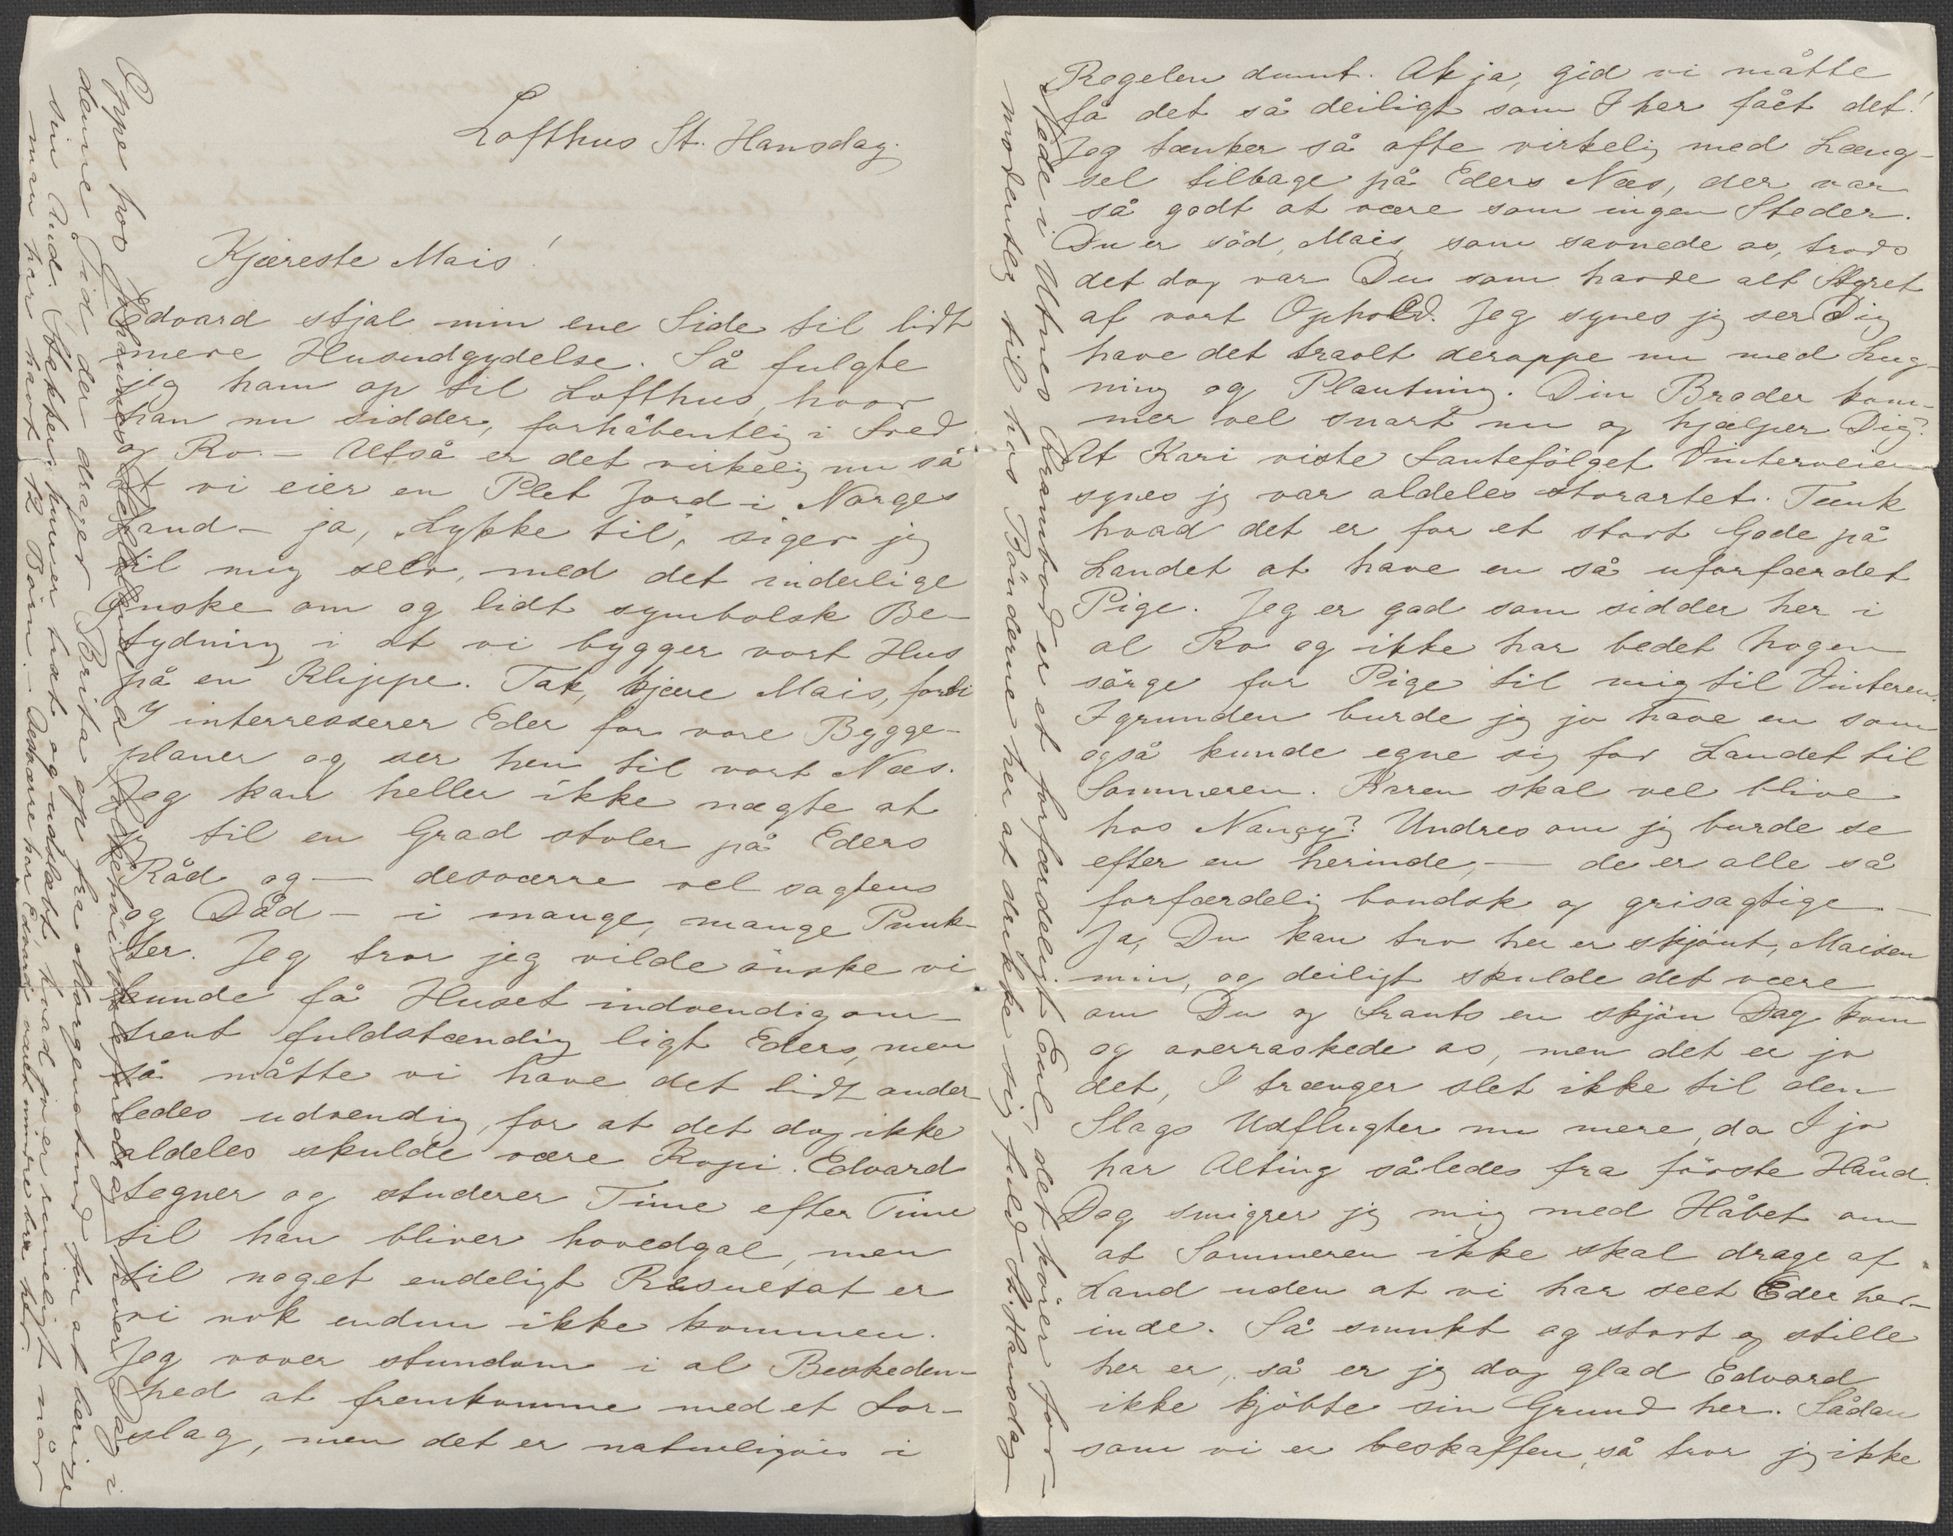 Lofthus St. Hansdag.
Kjæreste Mais!
Edvard stjal min ene Side til lidt
mere Husudgydelse. Så fulgte
jeg ham op til Lofthus, hvor
han nu sidder, forhåbentlig i Fred
og Ro. – Altså er det virkelig nu så
at vi eier en Plet Jord i Norges
Land – ja, "Lykke til", siger jeg
til mig selv, med det inderlige
Ønske om og lidt symbolsk Be-
tydning i at vi bygger vort Hus
på en Klippe. Tak, kjære Mais, fordi
I interresserer Eder for vore Bygge-
planer og ser hen til vort Næs.
Jeg kan heller ikke nægte at
jeg til en Grad stoler på Eders
Råd og – desværre vel sagtens
og Dåd – i mange, mange Punk-
ter. Jeg tror jeg vilde ønske vi
kunde få Huset indvendig om-
trent fuldstændig ligt Eders, men
så måtte vi have det lidt ander-
ledes udvendig, for at det dog ikke
aldeles skulde være Kopi. Edvard
tegner og studerer Time efter Time
til han bliver hovedgal, men
til noget endeligt Resultat er
vi nok endnu ikke kommen.
Jeg vover stundom i al Beskeden-
hed at fremkomme med et For-
slag, men det er naturligvis i
Regelen dumt. Ak ja, gid vi måtte
få det så deiligt som I her fået det!
Jeg tænker så ofte virkelig med Læng-
sel tilbage på Eders Næs, der var
så godt at være som ingen Steder.
Du er söd, Mais, som savnede os, trods
det dog var Du som havde alt Styret
af vort Ophold. Jeg synes jeg ser Dig
have det travlt deroppe nu med Lug-
ning og Plantning. Din Broder kom-
mer vel snart nu og hjælper Dig?
At Kari viste Fantefölget Vinterveien
synes jeg var aldeles storartet. Tænk
hvad det er for et stort Gode på
Landet at have en så uforfærdet
Pige. Jeg er god som sidder her i
al Ro og ikke har bedet Nogen
sörge for Pige til mig til Vinteren.
I grunden burde jeg jo have en som
også kunde egne sig for Landet til
Sommeren. Karen skal vel blive
hos Nancy? Undres om jeg burde se
efter en herinde, – de er alle så
forfærdelig bondsk og grisagtige –
Ja, Du kan tro her er skjönt, Maisen
min, og deiligt skulde det være
om Du og Frants en skjön Dag kom
og overraskede os, men det er jo
det, I trænger slet ikke til den
Slags Udflugter nu mere, da I jo
har Alting således fra förste Hånd.
Dog smigrer jeg mig med Håbet om
at Sommeren ikke skal drage af
Land uden at vi har seet Eder her-
inde. Så smukt og stort og stille
her er, så er jeg dog glad Edvard
ikke kjöbte sin Grund her. Sådan
som vi er beskaffen, så tror jeg ikke
Oppe hos Johannes og
hver Dag i
denne Tid der drager Brita op fra Morgenstund for at berize
sin Aud. Stakker, hun er træt og udslæbt, hvad jo er rimeligt når
man har havt 12 Börn. – Desværre har Edvard været mindre bra her.
Nede i Utnes Krambod er et forfærdeligt Leul, det hörer for-
modentlig til hos Bönderne her at drikke sig fuld St. Hansdag